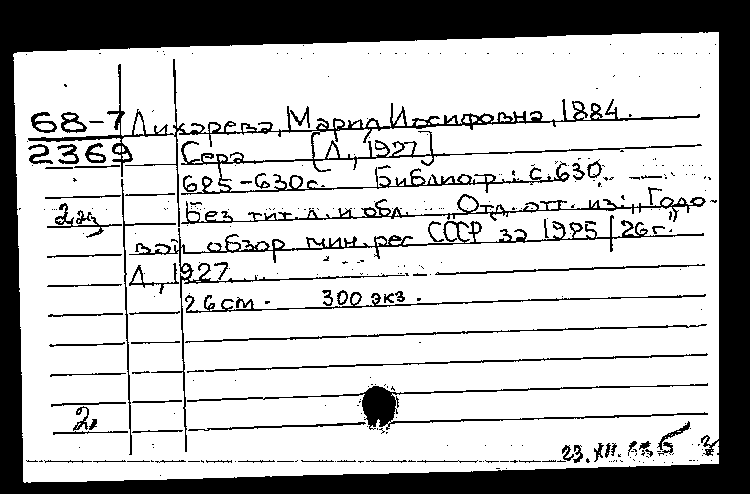 68-7 Лихарева, Мария Иосифовна, 1884.
2369 Сера. [Л., 1927]
625-630 с. Библиогр.: с. 630
2 эк Без тит. л. и обл. "Отд. отт. из: "Годо-
вой обзор мин. рес СССР за 1925/26г."
Л., 1927.
26 см. 300 экз.
2
23.XII.